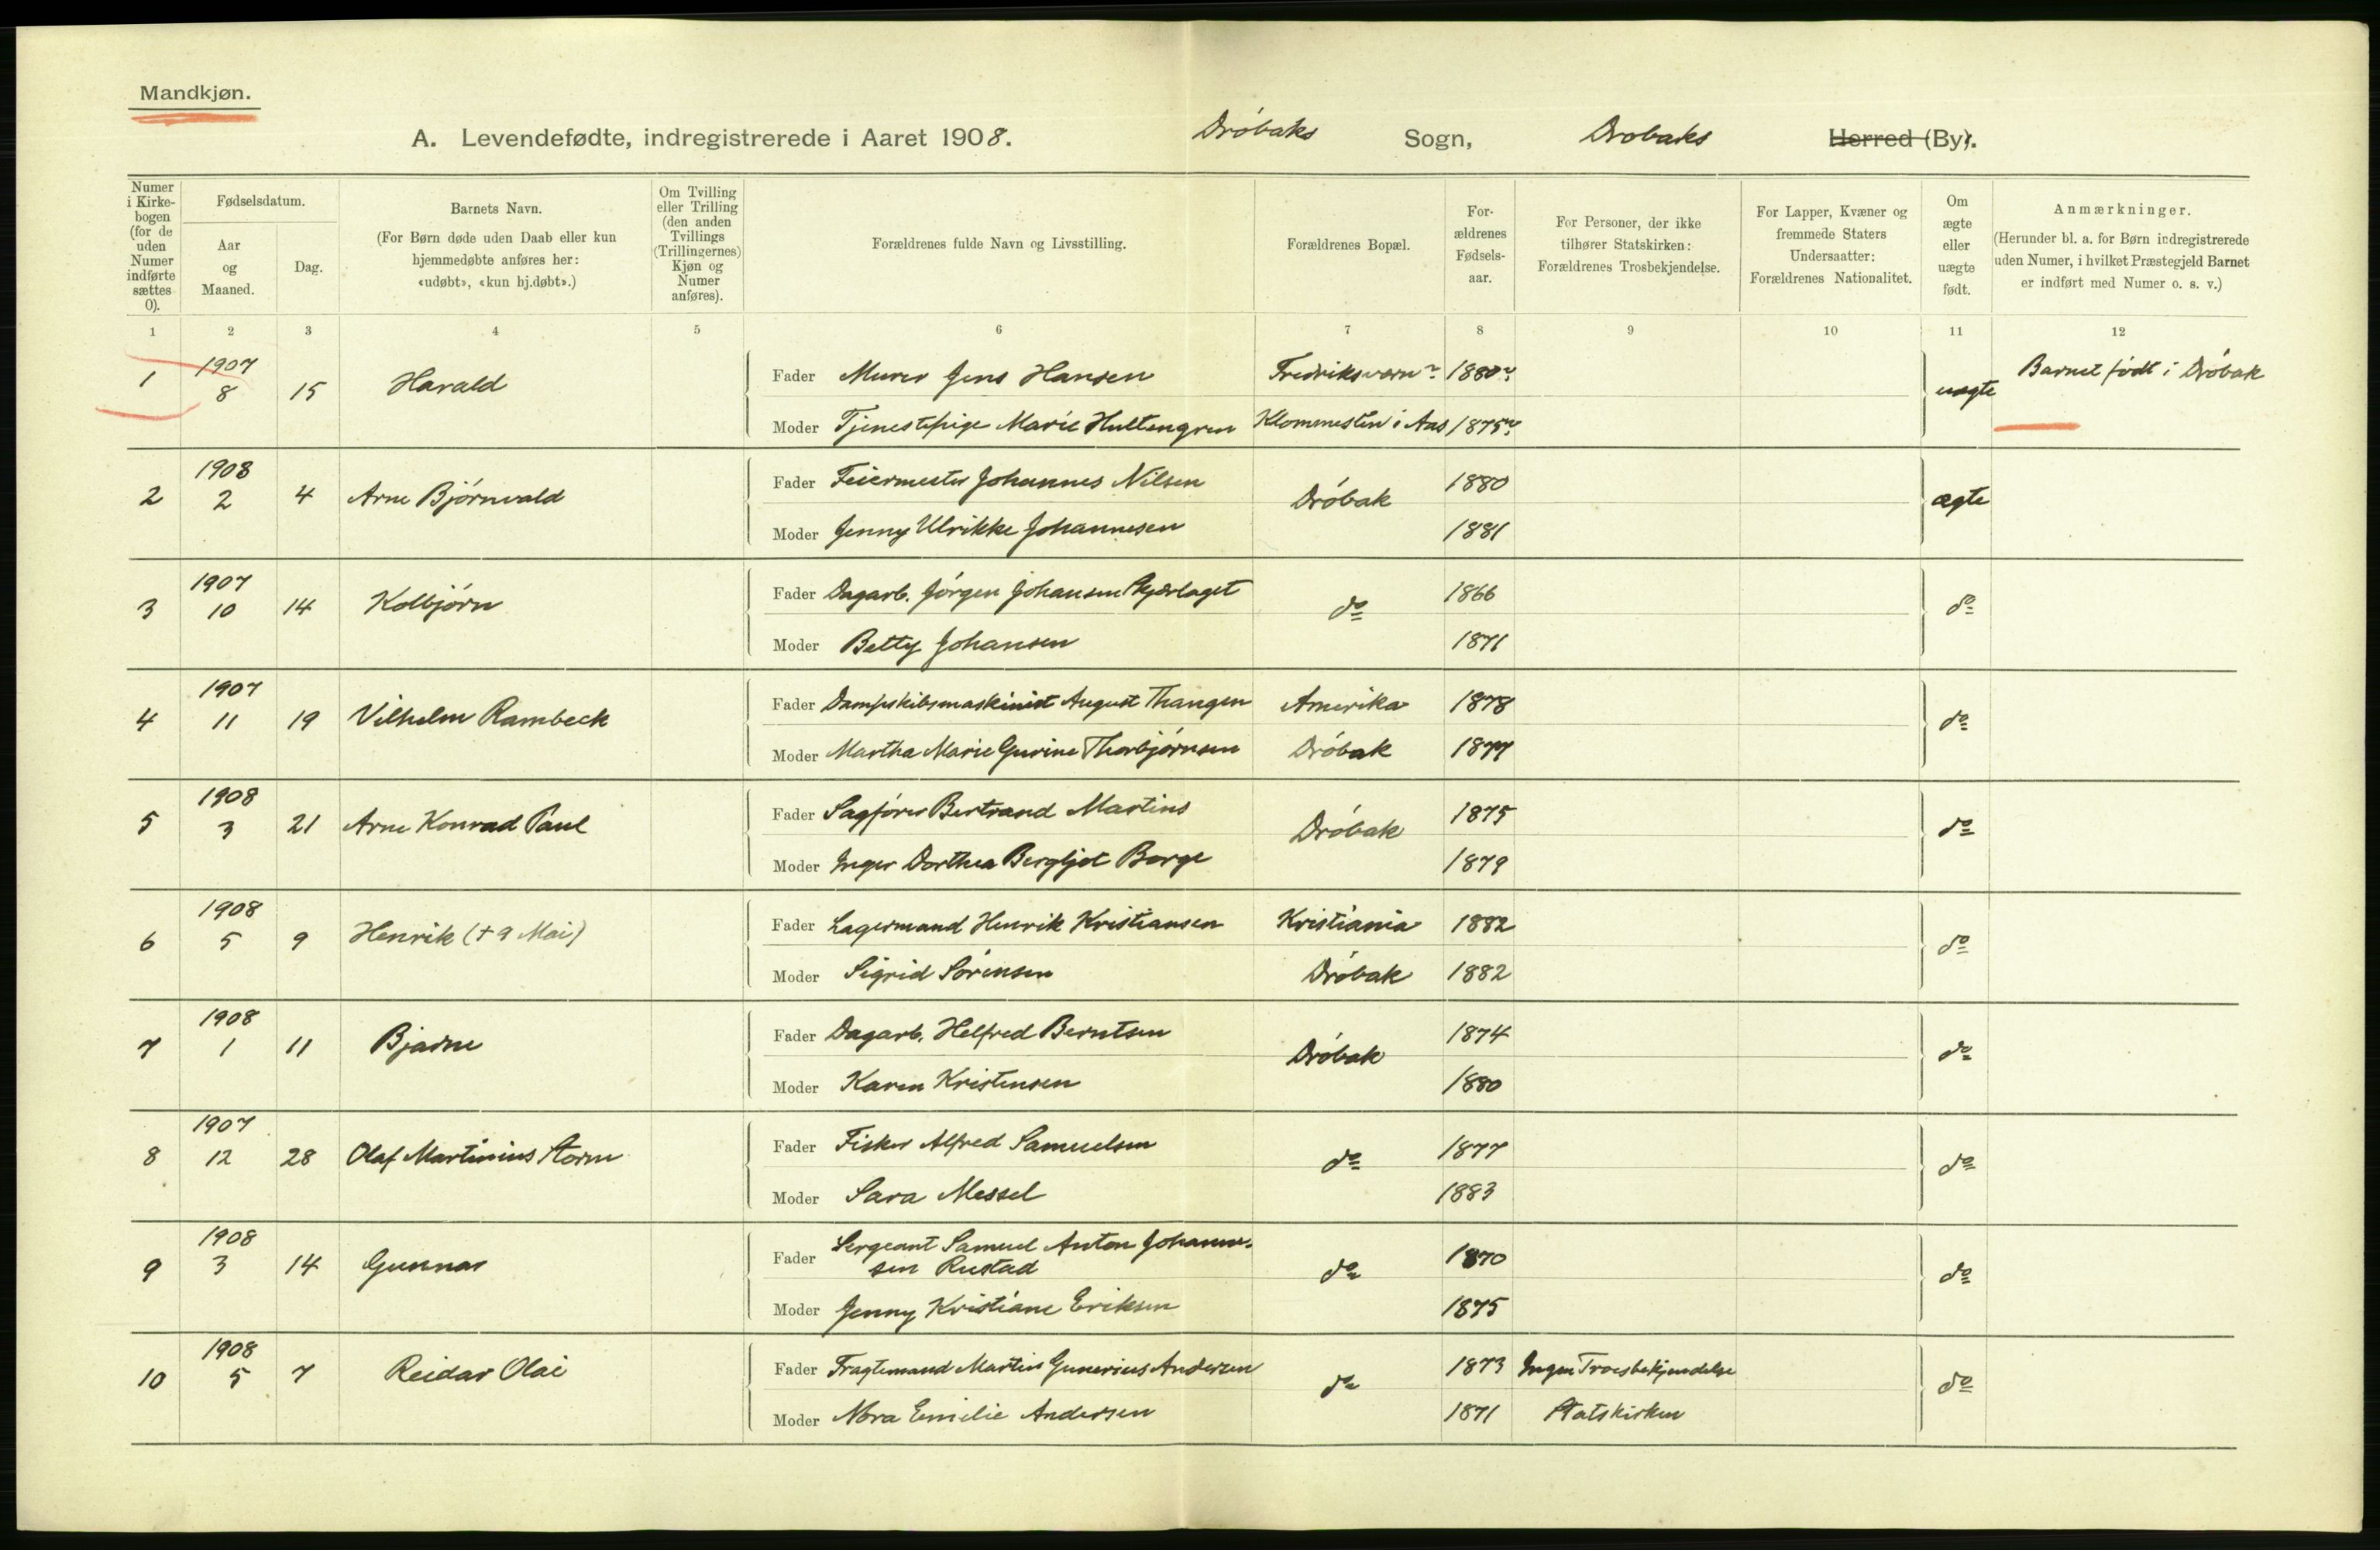 Mandkjøn.
A. Levendefødte, indregistrerede i Aaret 1908. Drøbaks Sogn, Drøbaks Herred (By).
Numer i Kirke-bogen (for de uden Numer indførte sættes 0).
Fødselsdatum.
Aar og Maaned.
Dag.
Barnets Navn.
(For Børn døde uden Daab eller kun hjemmedøbte anføres her: «udøbt», «kun hj.døbt».)
Om Tvilling eller Trilling (den anden Tvillings (Trillingernes) Kjøn og Numer anføres).
Forældrenes fulde Navn og Livsstilling.
Forældrenes Bopæl.
For-ældrenes Fødsels-aar.
For Personer, der ikke tilhører Statskirken: Forældrenes Trosbekjendelse.
For Lapper, Kvæner og fremmede Staters Undersaatter: Forældrenes Nationalitet.
Om ægte eller uægte født.
Anmærkninger.
(Herunder bl. a. for Børn indregistrerede uden Numer, i hvilket Præstegjeld Barnet er indført med Numer o. s. v.)
1 2 3 4 5 6 7 8 9 10 11 12
1 1907 8 15 Harald Fader Murer Jens Hansen Fredriksværn? 1880? uægte Barnet født i Drøbak
Moder Tjenestepige Marie Hultengren Klommesten i Aas 1875?
2 1908 2 4 Arne Bjørnvald Fader Feiermester Johannes Nilsen Drøbak 1880 ægte
Moder Jenny Ulrikke Johannesen 1881
3 1907 10 14 Kolbjørn Fader Dagarb. Jørgen Johansen Skjærlaget do 1866 do
Moder Betty Johansen 1871
4 1907 11 19 Vilhelm Rambeck Fader Dampskibsmaskinist August Thangen Amerika 1878 do
Moder Martha Marie Gurine Thorbjørnsen Drøbak 1877
5 1908 3 21 Arne Konrad Paul Fader Sagfører Bertrand Martins Drøbak 1875 do
Moder Inger Dorthea Bergljot Borge 1879
6 1908 5 9 Henrik (+ 9 Mai) Fader Lagermand Henrik Kristiansen Kristiania 1882 do
Moder Sigrid Sørensen Drøbak 1882
7 1908 1 11 Bjarne Fader Dagarb. Helfred Berntsen Drøbak 1874 do
Moder Karen Kristensen 1880
8 1907 12 28 Olaf Martinius Storm Fader Fisker Alfred Samuelsen do 1877 do
Moder Sara Messel 1883
9 1908 3 14 Gunnar Fader Sergeant Samuel Anton Johanne-
sen Rustad do 1870 do
Moder Jenny Kristiane Eriksen 1875
10 1908 5 7 Reidar Olai Fader Fragtemand Martin Gunerius Andersen do 1873 Ingen Troesbekjendelse do
Moder Nora Emilie Andersen 1871 Statskirken